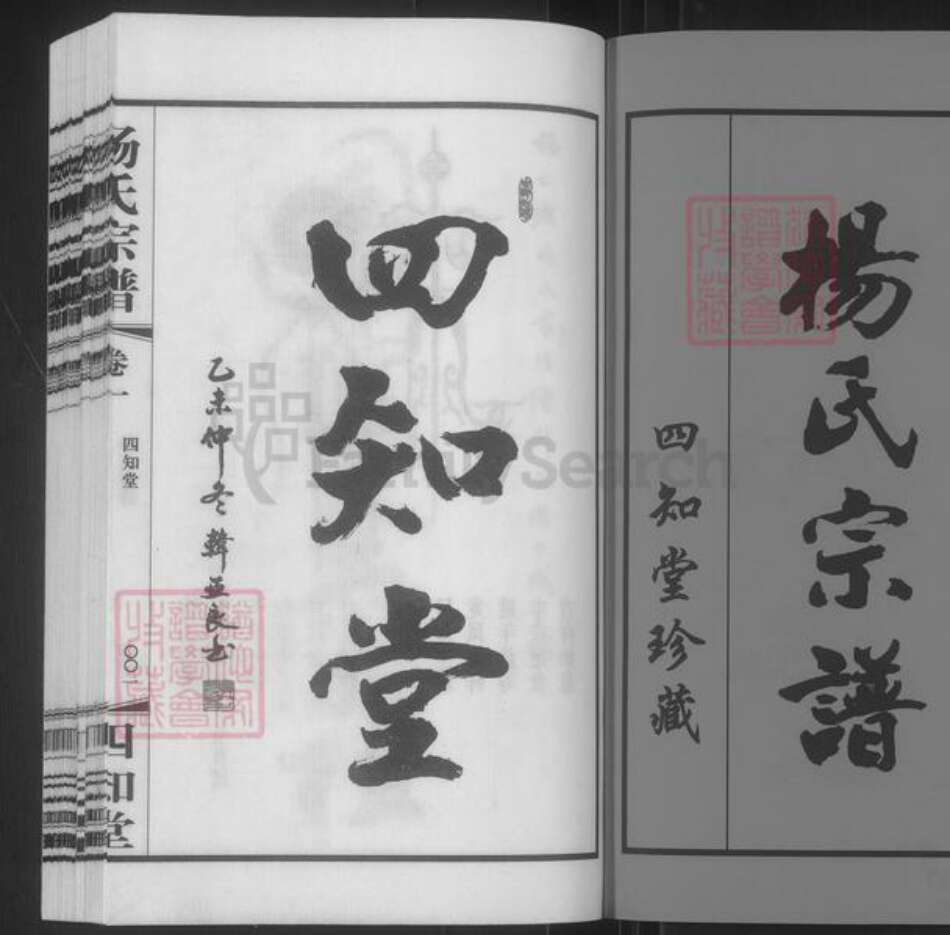 楊氏宗譜
四知堂珍藏
四知堂
乙未仲冬韓亚良书
杨氏宗谱
卷一
四知堂
〇〇一
四知堂
FamilySearch